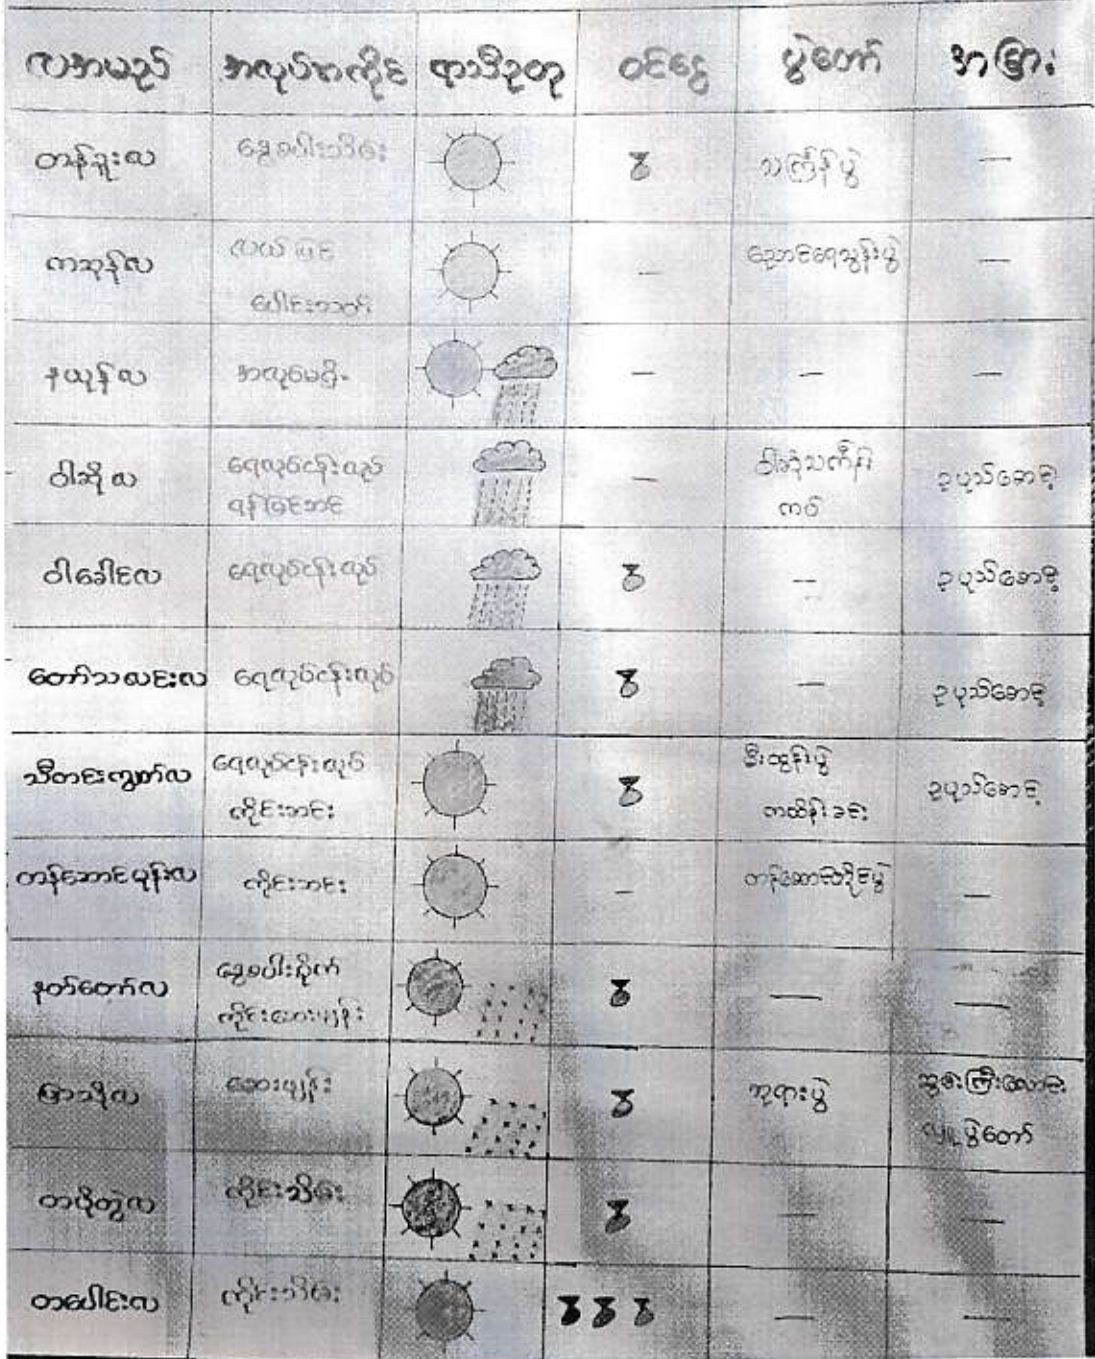 လအမည် အလုပ်အကိုင် ရာသီဥတု ဝင်ငွေ ပွဲတော် အခြား
တန်ခူးလ နွေစပါးသိမ်း သင်္ကြန်ပွဲ —
ကဆုန်လ လယ်ပြင် — ညောင်ရေသွန်းပွဲ —
ပေါင်းသတ်
နယုန်လ အလုပ်မရှိ — — —
ဝါဆိုလ ရေလုပ်ငန်းလုပ် — ဝါဆိုသင်္ကန်း ဥပုသ်စောင့်
ကပ်
ဝါခေါင်လ ရေလုပ်ငန်းလုပ် — ဥပုသ်စောင့်
တော်သလင်းလ ရေလုပ်ငန်းလုပ် — ဥပုသ်စောင့်
သီတင်းကျွတ်လ ရေလုပ်ငန်းလုပ် မီးထွန်းပွဲ ဥပုသ်စောင့်
ကိုင်းခင်း ကထိန်ခင်း
တန်ဆောင်မုန်းလ ကိုင်းခင်း — တန်ဆောင်တိုင်ပွဲ —
နတ်တော်လ နွေစပါးစိုက် — —
ကိုင်းဆေးဖျန်း
ပြာသိုလ ဆေးဖျန်း ဘုရားပွဲ ဆွမ်းကြီးလောင်း
လှူပွဲတော်
တပို့တွဲလ ကိုင်းသိမ်း — —
တပေါင်းလ ကိုင်းသိမ်း — —